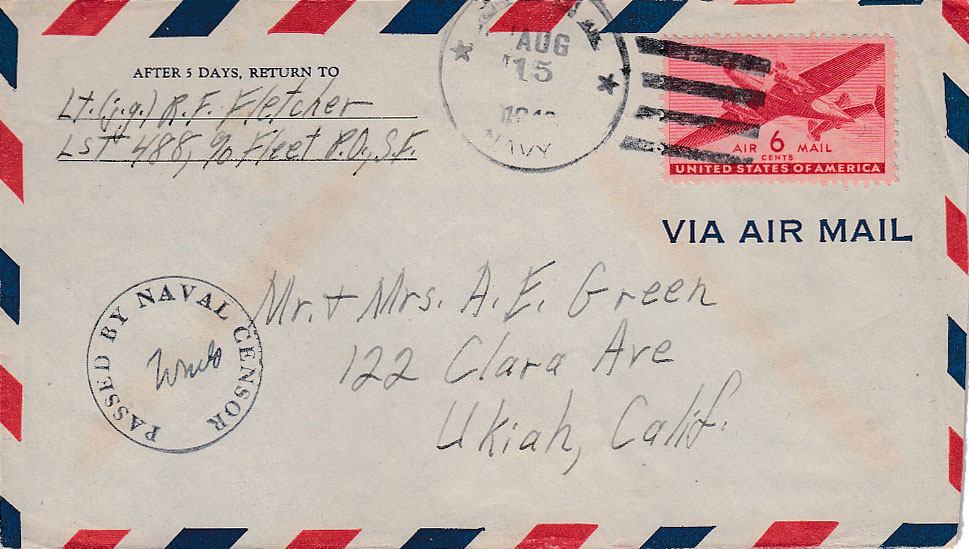 AFTER 5 DAYS, RETURN TO
Lt.(j.g.) R. F. Fletcher
LST 488, c/o Fleet P.O., S.F.
AUG
15
NAVY
AIR 6 MAIL
CENTS
UNITED STATES OF AMERICA
VIA AIR MAIL
PASSED BY NAVAL CENSOR
Mr. + Mrs. A. E. Green
122 Clara Ave
Ukiah, Calif.